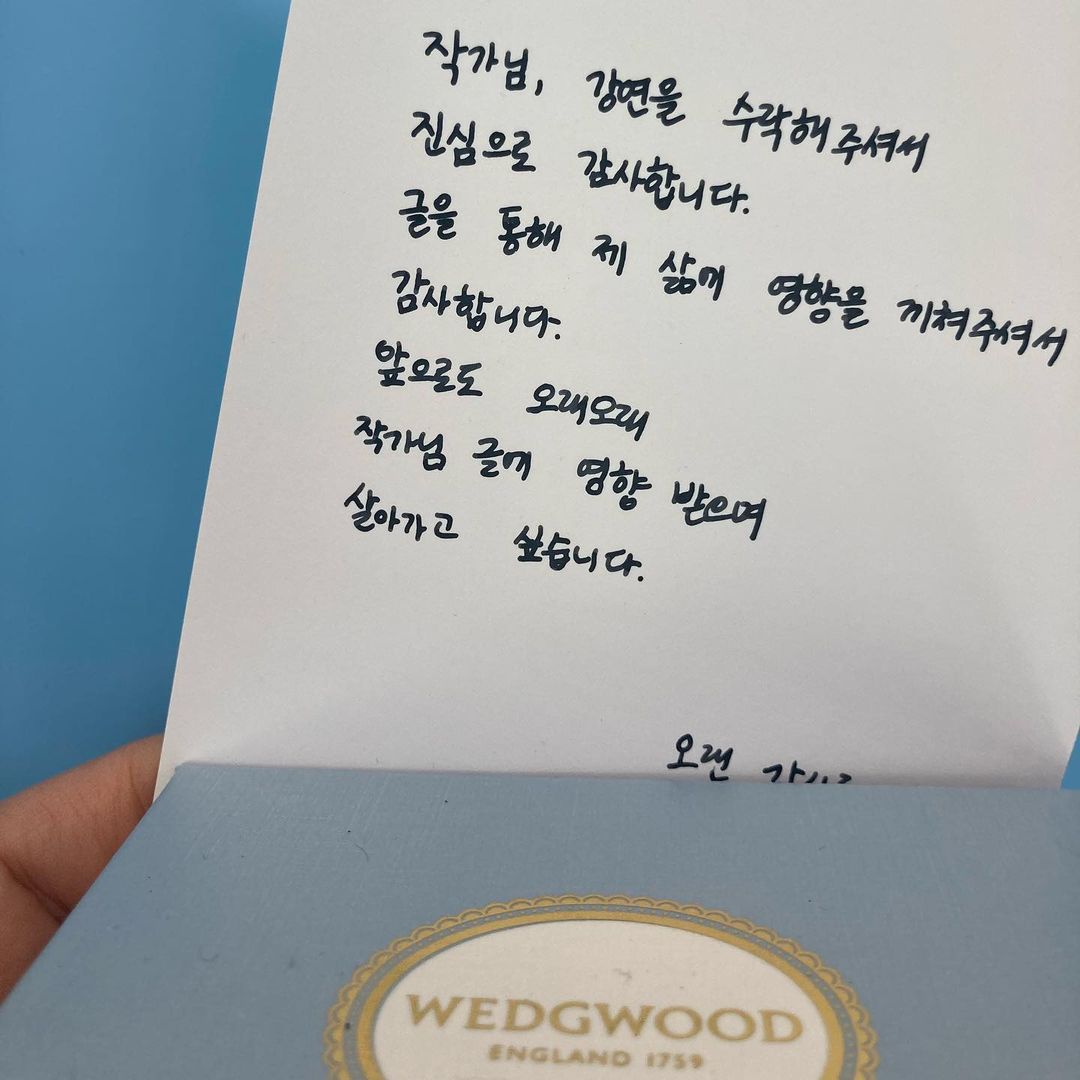 작가님, 강연을 수락해주셔서
진심으로 감사합니다.
글을 통해 제 삶에 영향을 끼쳐주셔서
감사합니다.
앞으로도 오래오래
작가님 글에 영향 받으며
살아가고 싶습니다.
오랜
WEDGWOOD
ENGLAND 1759